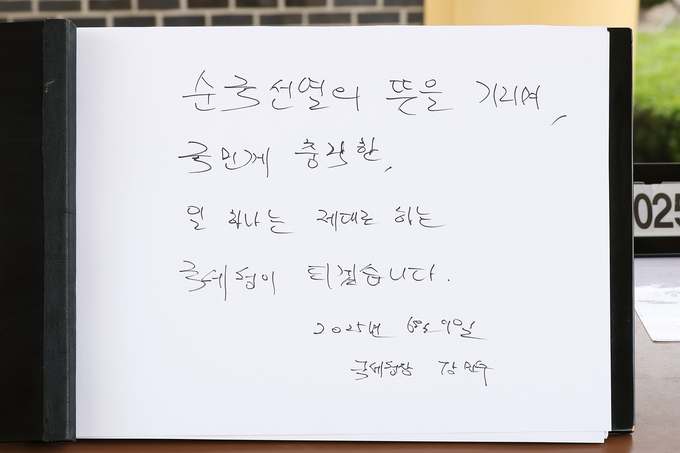 순국선열의 뜻을 기리여,
국민께 충직한,
일 하나는 제대로 하는
국세청이 되겠습니다.
2025년 6월 9일
국세청장 강민수
025